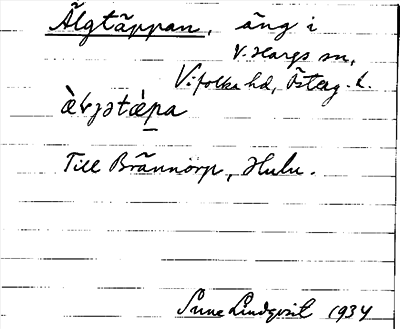 Älgtäppan, äng i
V. Hargs sn,
Vifolka hd, Österg. l.
Till Brännorp, Hulu.
Sune Lindqvist 1934